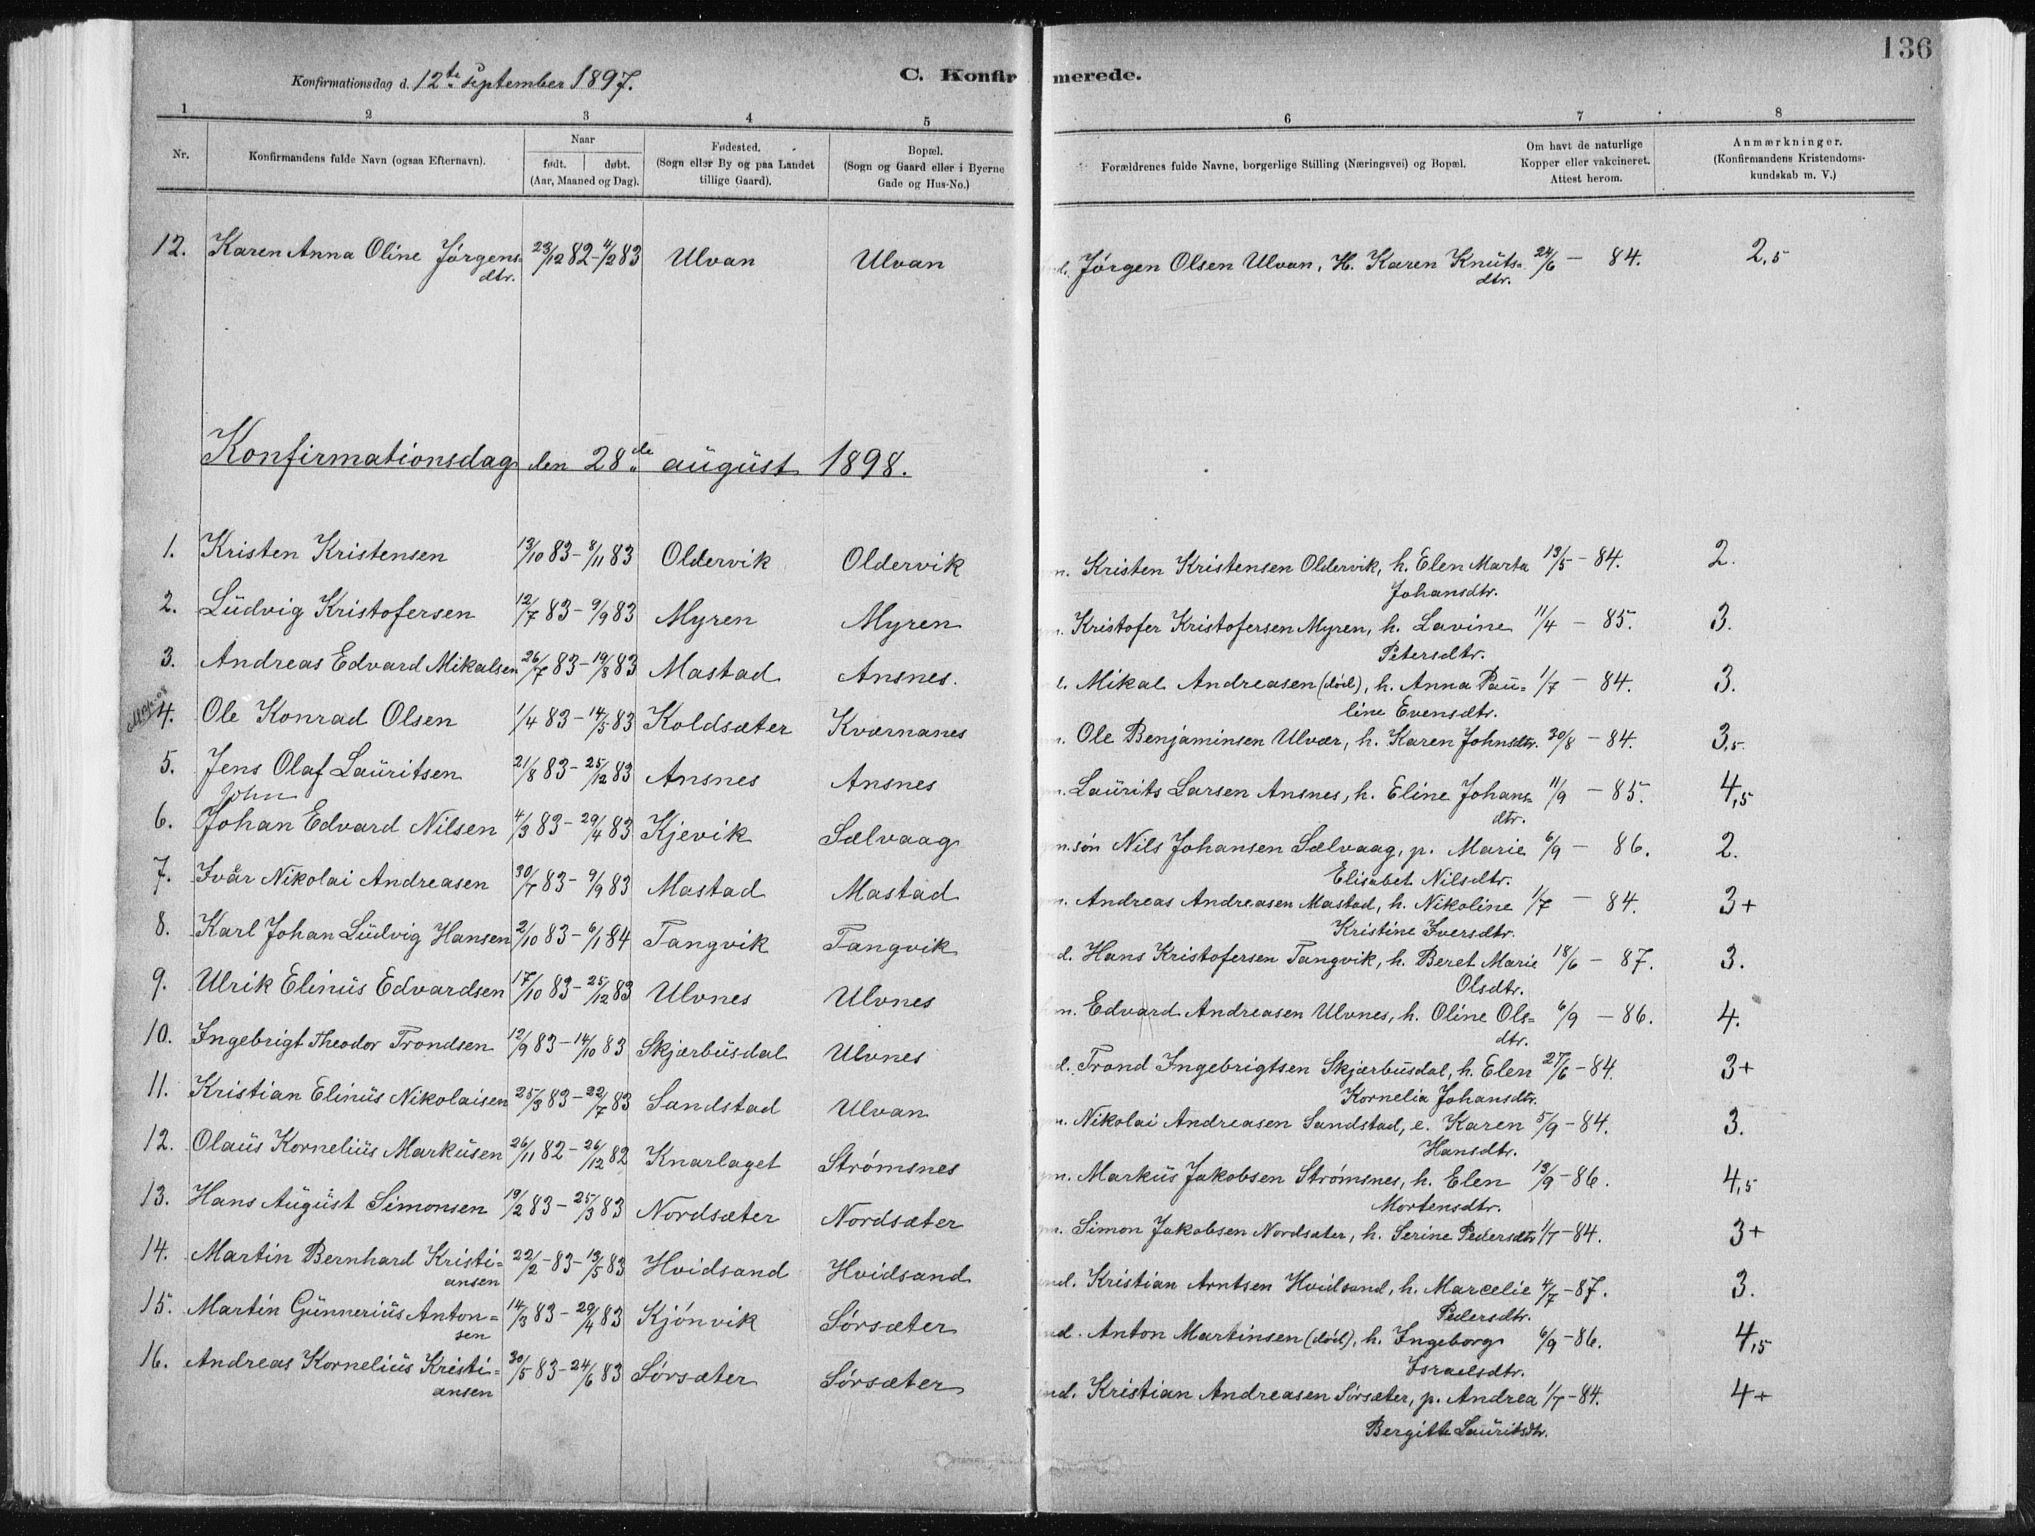 136
Konfirmationsdag d. 12te September 1897.
C. Konfirmerede.
1 2 3 4 5 6 7 8
Nr. Konfirmandens fulde Navn (ogsaa Efternavn). Naar født. døbt. (Aar, Maaned og Dag). Fødested. (Sogn eller By og paa Landet tillige Gaard). Bopæl. (Sogn og Gaard eller i Byerne Gade og Hus-No.) Forældrenes fulde Navne, borgerlige Stilling (Næringsvei) og Bopæl. Om havt de naturlige Kopper eller vakcineret. Attest herom. Anmærkninger. (Konfirmandens Kristendomskundskab m. V.)
12. Karen Anna Oline Jørgens- 23/12 82 - 4/2 83 Ulvan Ulvan Jørgen Olsen Ulvan, H. Karen Knuts- 24/6 - 84. 2,5
dtr. dtr.
Konfirmationsdag den 28de august 1898.
1. Kristen Kristensen 13/10 83 - 8/11 83 Oldervik Oldervik Kristen Kristensen Oldervik, h. Elen Marta 13/5 - 84. 2.
Johansdtr.
2. Ludvig Kristofersen 12/7 83 - 9/9 83 Myren Myren Kristofer Kristofersen Myren, h. Lavine 11/4 - 85. 3.
Petersdtr.
3. Andreas Edvard Mikalsen 26/7 83 - 19/8 83 Mastad Ansnes. Mikal Andreasen (død), h. Anna Pau- 1/7 - 84. 3.
line Evensdtr.
4. Ole Konrad Olsen 1/4 83 - 14/5 83 Koldsæter Kværnanes Ole Benjaminsen Ulvær, h. Karen Johnsdtr. 30/8 - 84. 3,5
5. Jens Olaf Lauritsen 21/8 83 - 25/12 83 Ansnes Ansnes Laurits Larsen Ansnes, h. Eline Johans- 11/9 - 85. 4,5
John dtr.
6. Johan Edvard Nilsen 4/3 83 - 29/4 83 Kjevik Sælvaag søn Nils Johansen Sælvaag, p. Marie 6/9 - 86. 2.
Elisabet Nilsdtr.
7. Ivår Nikolai Andreasen 30/7 83 - 9/9 83 Mastad Mastad Andreas Andreasen Mastad, h. Nikoline 1/7 - 84. 3+
Kristine Iversdtr.
8. Karl Johan Ludvig Hansen 2/10 83 - 6/1 84 Tangvik Tangvik Hans Kristofersen Tangvik, h. Beret Marie 18/6 - 87. 3.
Olsdtr.
9. Ulrik Elinus Edvardsen 17/10 83 - 25/12 83 Ulvnes Ulvnes Edvard Andreasen Ulvnes, h. Oline Ols- 6/9 - 86. 4.
dtr.
10. Ingebrigt Theodor Trondsen 12/9 83 - 14/10 83 Skjærbusdal Ulvnes Trond Ingebrigtsen Skjærbusdal, h. Elen 27/6 - 84. 3+
Kornelia Johansdtr.
11. Kristian Elinus Nikolaisen 25/3 83 - 22/7 83 Sandstad Ulvan Nikolai Andreasen Sandstad, e. Karen 5/9 - 84. 3.
Hansdtr.
12. Olaus Kornelius Markusen 26/11 82 - 26/12 82 Knarlaget Strømsnes Markus Jakobsen Strømsnes, h. Elen 13/9 - 86. 4,5
Mortensdtr.
13. Hans August Simonsen 19/2 83 - 25/3 83 Nordsæter Nordsæter Simon Jakobsen Nordsæter, h. Serine Pedersdtr 1/7 - 84. 3+
14. Martin Bernhard Kristi- 22/2 - 83 - 13/5 83 Hvidsand Hvidsand Kristian Arntsen Hvidsand, h. Marcelie 4/7 - 87. 3.
ansen Pedersdtr.
15. Martin Gunnerius Anton- 14/3 83 - 29/4 83 Kjønvik Sørsæter Anton Martinsen (død), h. Ingeborg 6/9 - 86. 4,5
sen Israelsdtr.
16. Andreas Kornelius Kristi- 30/5 83 - 24/6 83 Sørsæter Sørsæter Kristian Andreasen Sørsæter, p. Andrea 1/7 - 84. 4+
ansen Bergitte Lauritsdtr.